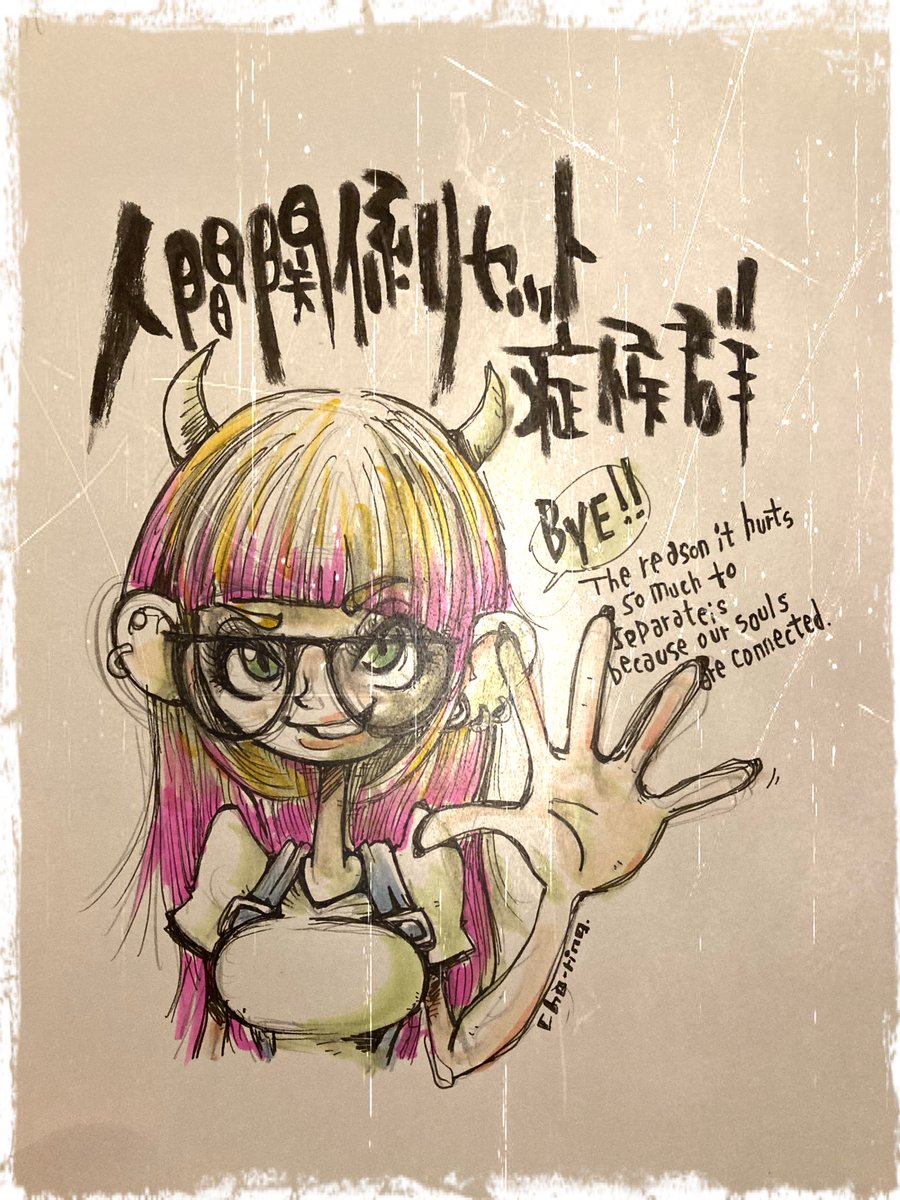 人間関係リセット
症候群
BYE!!
The reason it hurts
so much to
separate is
because our souls
are connected.
Cha-ring.